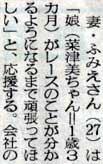 妻・ふみえさん（27）は
「娘（菜津美ちゃん＝1歳3
カ月）がレースのことが分か
るようになるまで頑張ってほ
しい」と、応援する。会社の